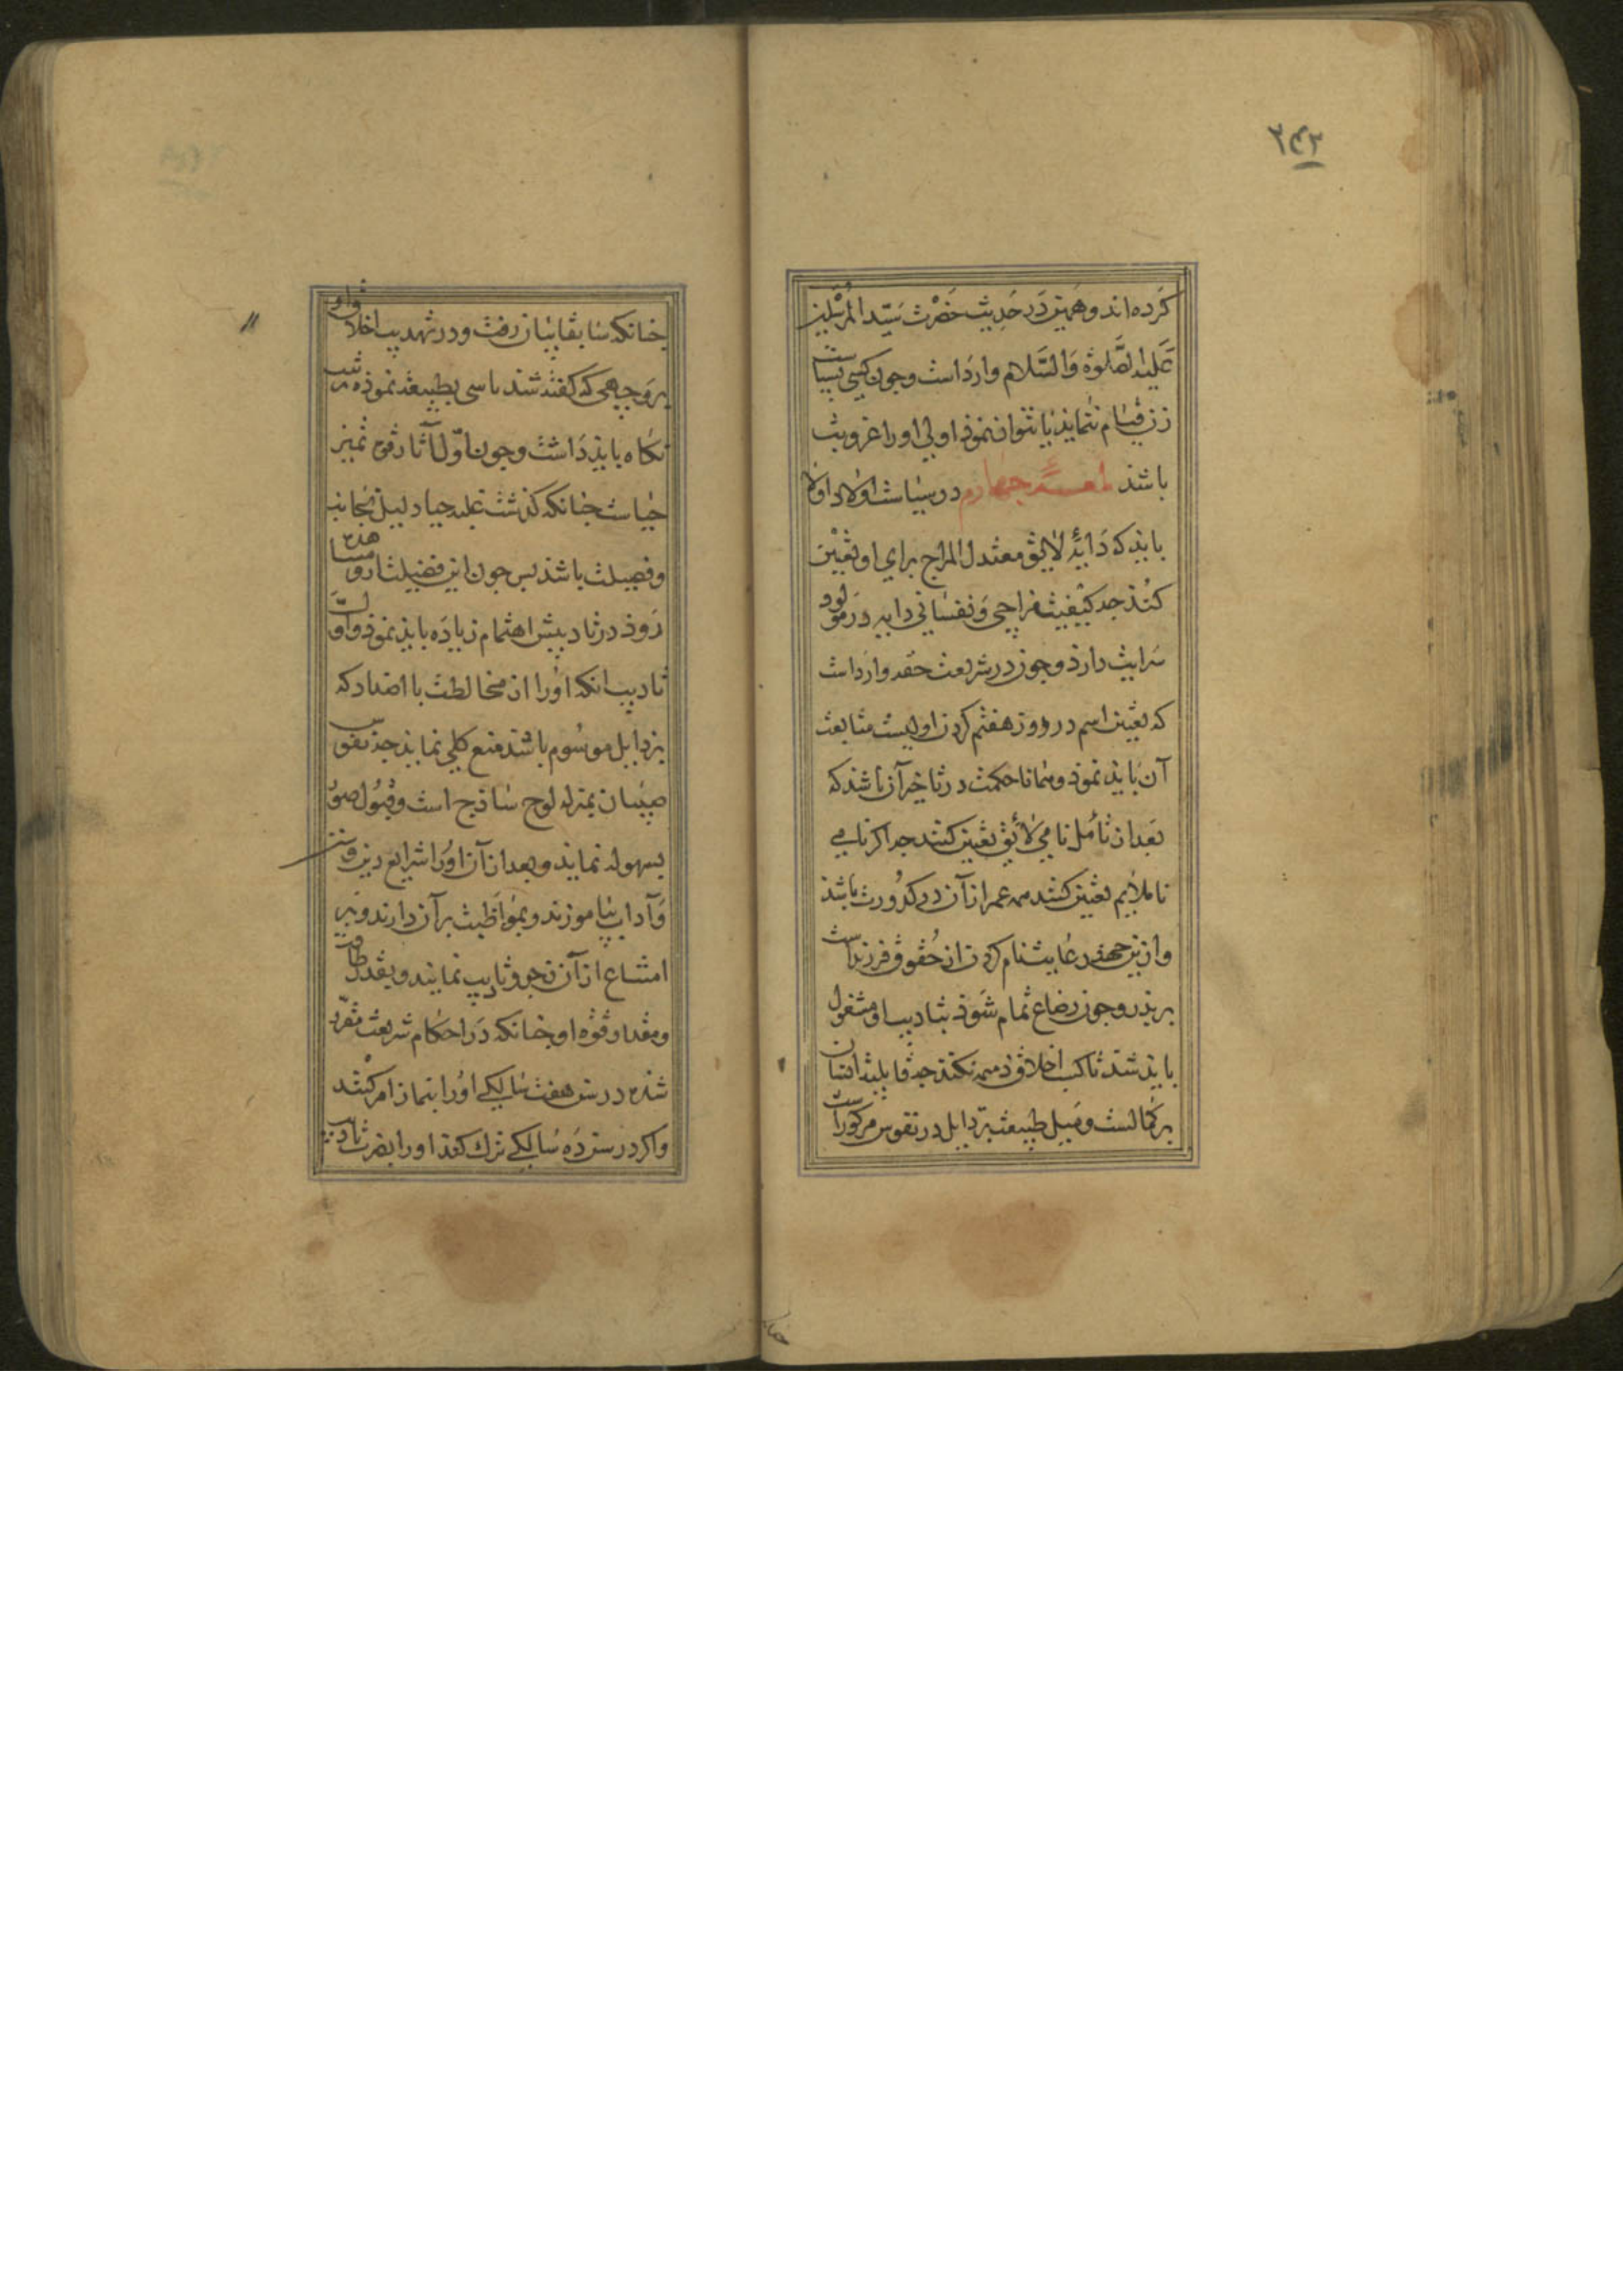 ۲۴۳
كرده اند و همين در حديث حضرت سيد المرسلين
عليه الصلوة والسلام وارد است وجون كسى بسياست
زن قيام نتمايذ يا نتوان نموذ اولى اورا عزوبت
باشذ لمعهٔ جهارم در سياست اولاد اولا
بايد كه دايهٔ لايق معتدل المزاج براى او تعيين
كنند جه كيفيت مزاجى و نفسانى دايه در مولود
سرايت دارذ وجون در شريعت حقه وارد است
كه تعيين اسم در روز هفتم كردن اوليست متابعت
آن بايد نموذ و همانا حكمت در تاخير آن باشد كه
بعد از تأمل نامى لايق تعيين كنند جه اكر نامى
ناملايم تعيين كنند همه عمر از آن در كدورت باشذ
و ازين جهت رعايت نام كردن از حقوق فرزندست
بر پذر وجون رضاع تمام شوذ بتاديب او مشغول
بايد شد تا كسب اخلاق ذميمه نكند جه قابليت انسان
بر كمالست و ميل طبيعت برذايل در نفوس مركوزست
جنانكه سابقا بيان رفت و در تهذيب اخلاق او
بروجهى كه كفته شد تاسى بطبيعه نموذه ترتيب
نكاه بايد داشت وجون اول آثار قوة تميز
حياست جنانكه كذشت غلبه حيا دليل نجابت
و فضيلت باشد بس جون اين فضيلت ازو مشاهده
روذ در تاديبش اهتمام زياده بايد نموذ و اول
تاديب آنكه اورا از مخالطت با اضداد كه
برذايل موسوم باشند منع كلى نمايند جه نفوس
صبيان بمنزله لوح ساذج است و قبول صور
بسهوله نمايد و بعد از آن اورا شرايع دين و سنن
و آداب بياموزند و بمواظبت برآن دارند و بر
امتناع از آن زجر و تاديب نمايند و بقدر طاقت
و مقدار قوه او جنانكه در احكام شريعت مقرر
شده در سن هفت سالكى اورا بنماز امر كنند
و اكر در سن ده سالكى ترك كند اورا بضرب تاديب